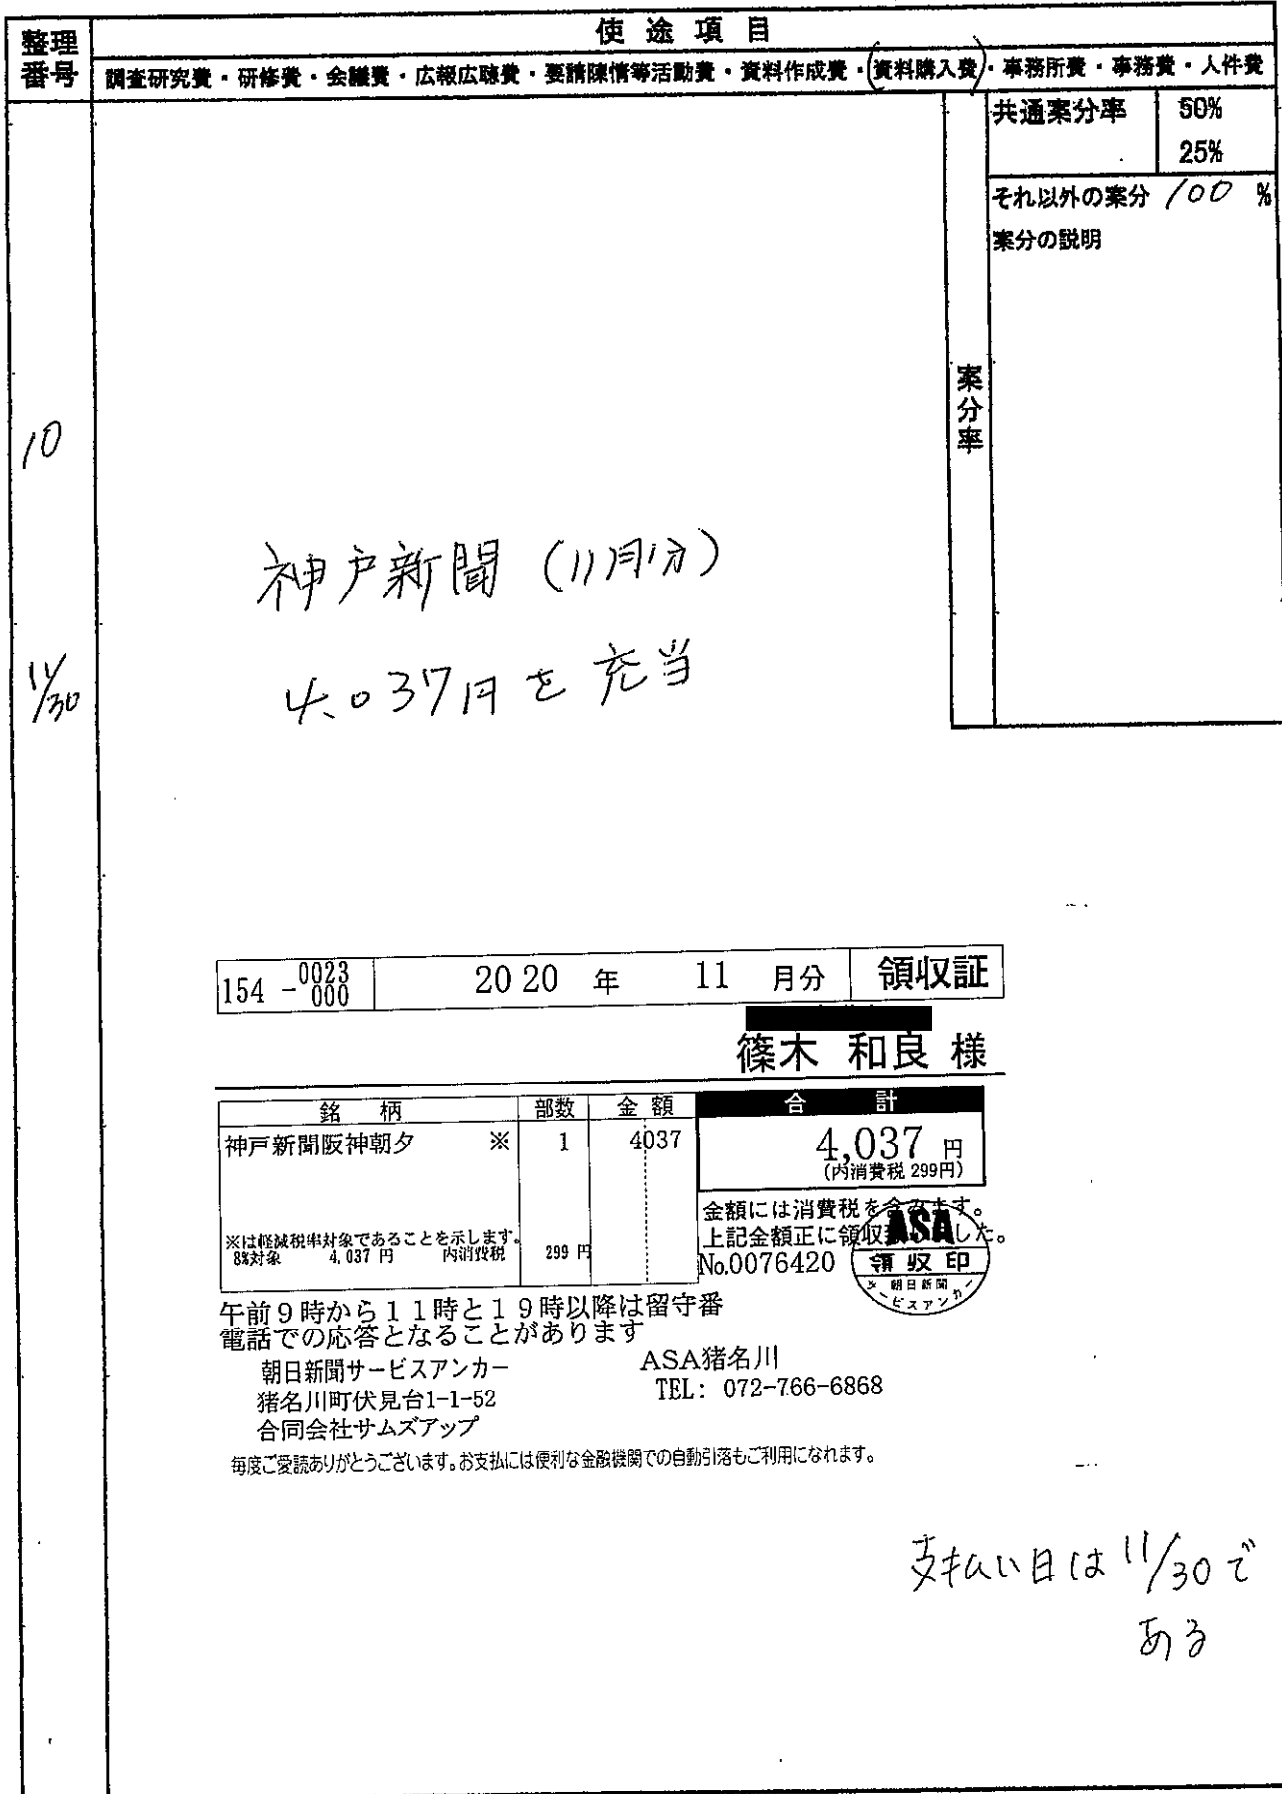 整理番号
使途項目
調査研究費・研修費・会議費・広報広聴費・要請陳情等活動費・資料作成費・(資料購入費)・事務所費・事務費・人件費
共通案分率 50%
25%
それ以外の案分 100 %
案分の説明
案分率
10
神戸新聞 (11月分)
11/30
4,037円を充当
154 -0023 000 2020 年 11 月分 領収証
篠木 和良 様
銘柄 部数 金額 合計
神戸新聞阪神朝夕 ※ 1 4037
4,037 円
(内消費税 299円)
※は軽減税率対象であることを示します。
8%対象 4,037 円 内消費税 299 円
金額には消費税を含みます。
上記金額正に領収した。
No.0076420
ASA
領収印
朝日新聞
サービスアンカー
午前9時から11時と19時以降は留守番
電話での応答となることがあります
朝日新聞サービスアンカー
ASA猪名川
猪名川町伏見台1-1-52
TEL: 072-766-6868
合同会社サムズアップ
毎度ご愛読ありがとうございます。お支払には便利な金融機関での自動引落もご利用になれます。
支払い日は 11/30で
ある